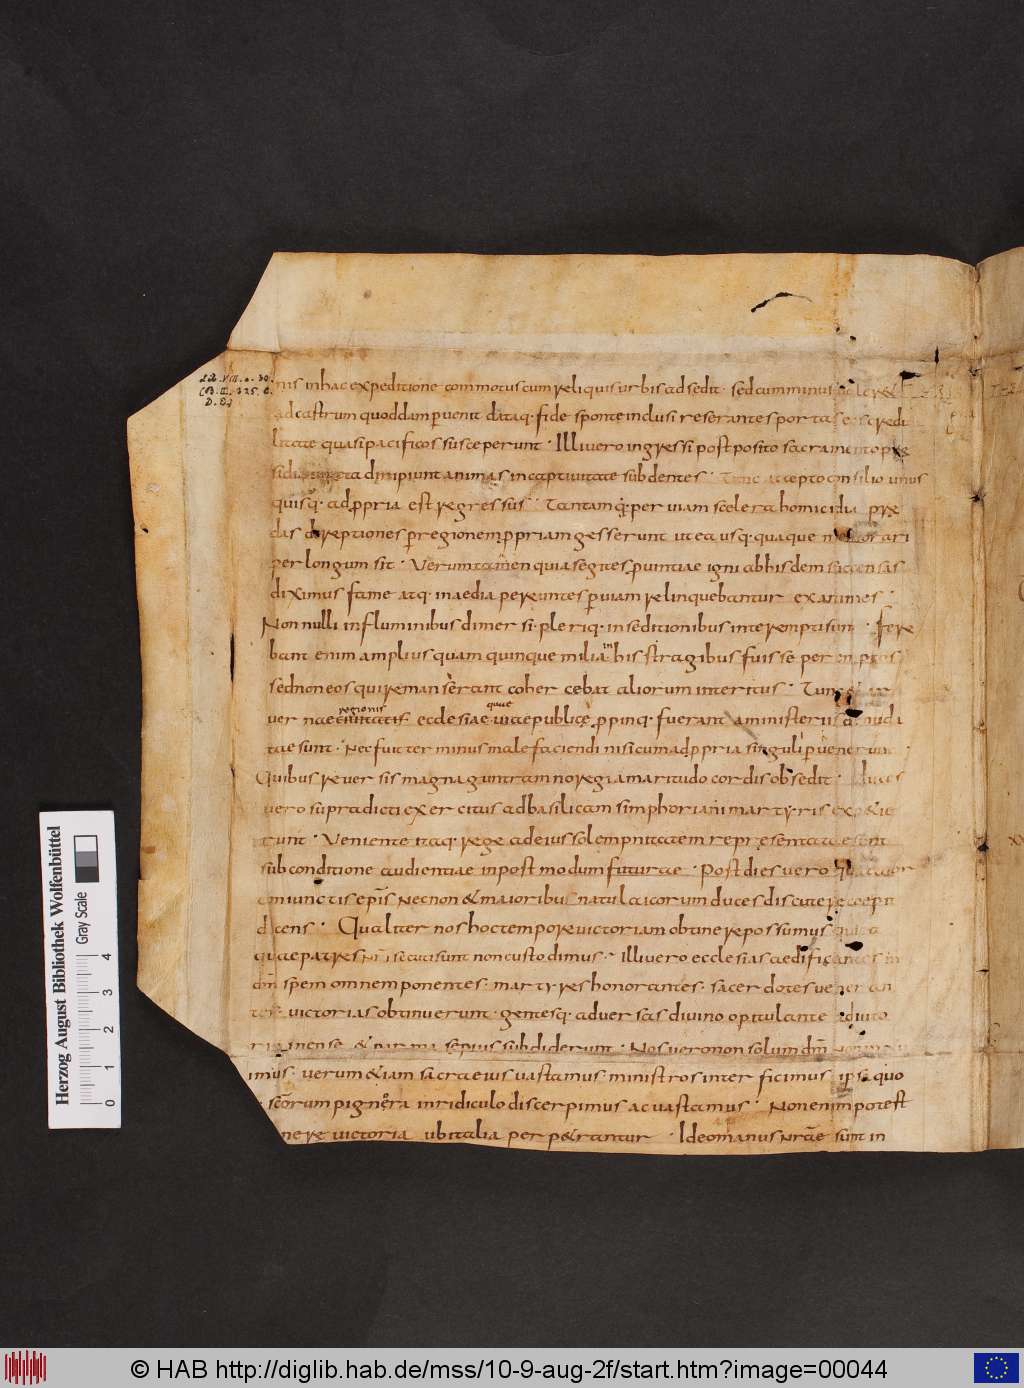 nis inhac expeditione commotus cum reliquis urbis adsedit · sed cum minus
adcastrum quoddam puenit dataq· fide sponte inclusi reserantes portas
litate quasi pacificos susceperunt · Illi uero ingressi postposito sacramento
diripiunt animas incaptiuitate subdentes · Tunc accepto consilio unus
quisq· adppria est regressus · Tantam q· per uiam scelera homicidia pre
das direptiones p regionem ppriam gesserunt ut ea usq· quaque
per longum sit · Verumtamen quia segetes puintiae igni abhisdem succensas
diximus fame atq· inaedia pereuntes p uiam relinquebantur exanimes ·
Non nulli influminibus dimersi · pleriq· inseditionibus interempti sunt · fere
bant enim amplius quam quinque milia in his stragibus fuisse peremptos
sed non eos qui remanserant cohercebat aliorum interitus · Tunc
uernae ciuitatis regionis ecclesiae que uiae publice ppinq· fuerant aministeriis
tae sunt · Nec fuit terminus malefaciendi nisi cum adppria singuli puenerunt
Quibus reuersis magna guntramno regi amaritudo cordis obsedit · duces
uero supradicti exercitus ad basilicam simphoriani martyris
runt · Veniente itaq· rege ad eius solempnitatem representati sunt
sub conditione audientiae in postmodum futurae · Post dies uero quattuor
coniunctis epis necnon & maioribus natu laicorum duces discutere coepit
dicens · Qualiter nos hoc tempore uictoriam obtinere possumus
quae patres nri secuti sunt non custodimus · illi uero ecclesias aedificantes in
dm spem omnem ponentes · martyres honorantes · sacerdotes
uictorias obtinuerunt · gentesq· aduersas diuino opitulante
inense & parma sepius subdiderunt · Nos uero non solum dm
imus · uerum etiam sacra eius uastamus ministros interficimus ipsa quo
scorum pignora in ridiculo discerpimus ac uastamus · Non enim potest
nere uictoria ubi talia perpetrantur · Ideo manus nrae sunt in
Herzog August Bibliothek Wolfenbüttel
Gray Scale
0 1 2 3 4
© HAB http://diglib.hab.de/mss/10-9-aug-2f/start.htm?image=00044